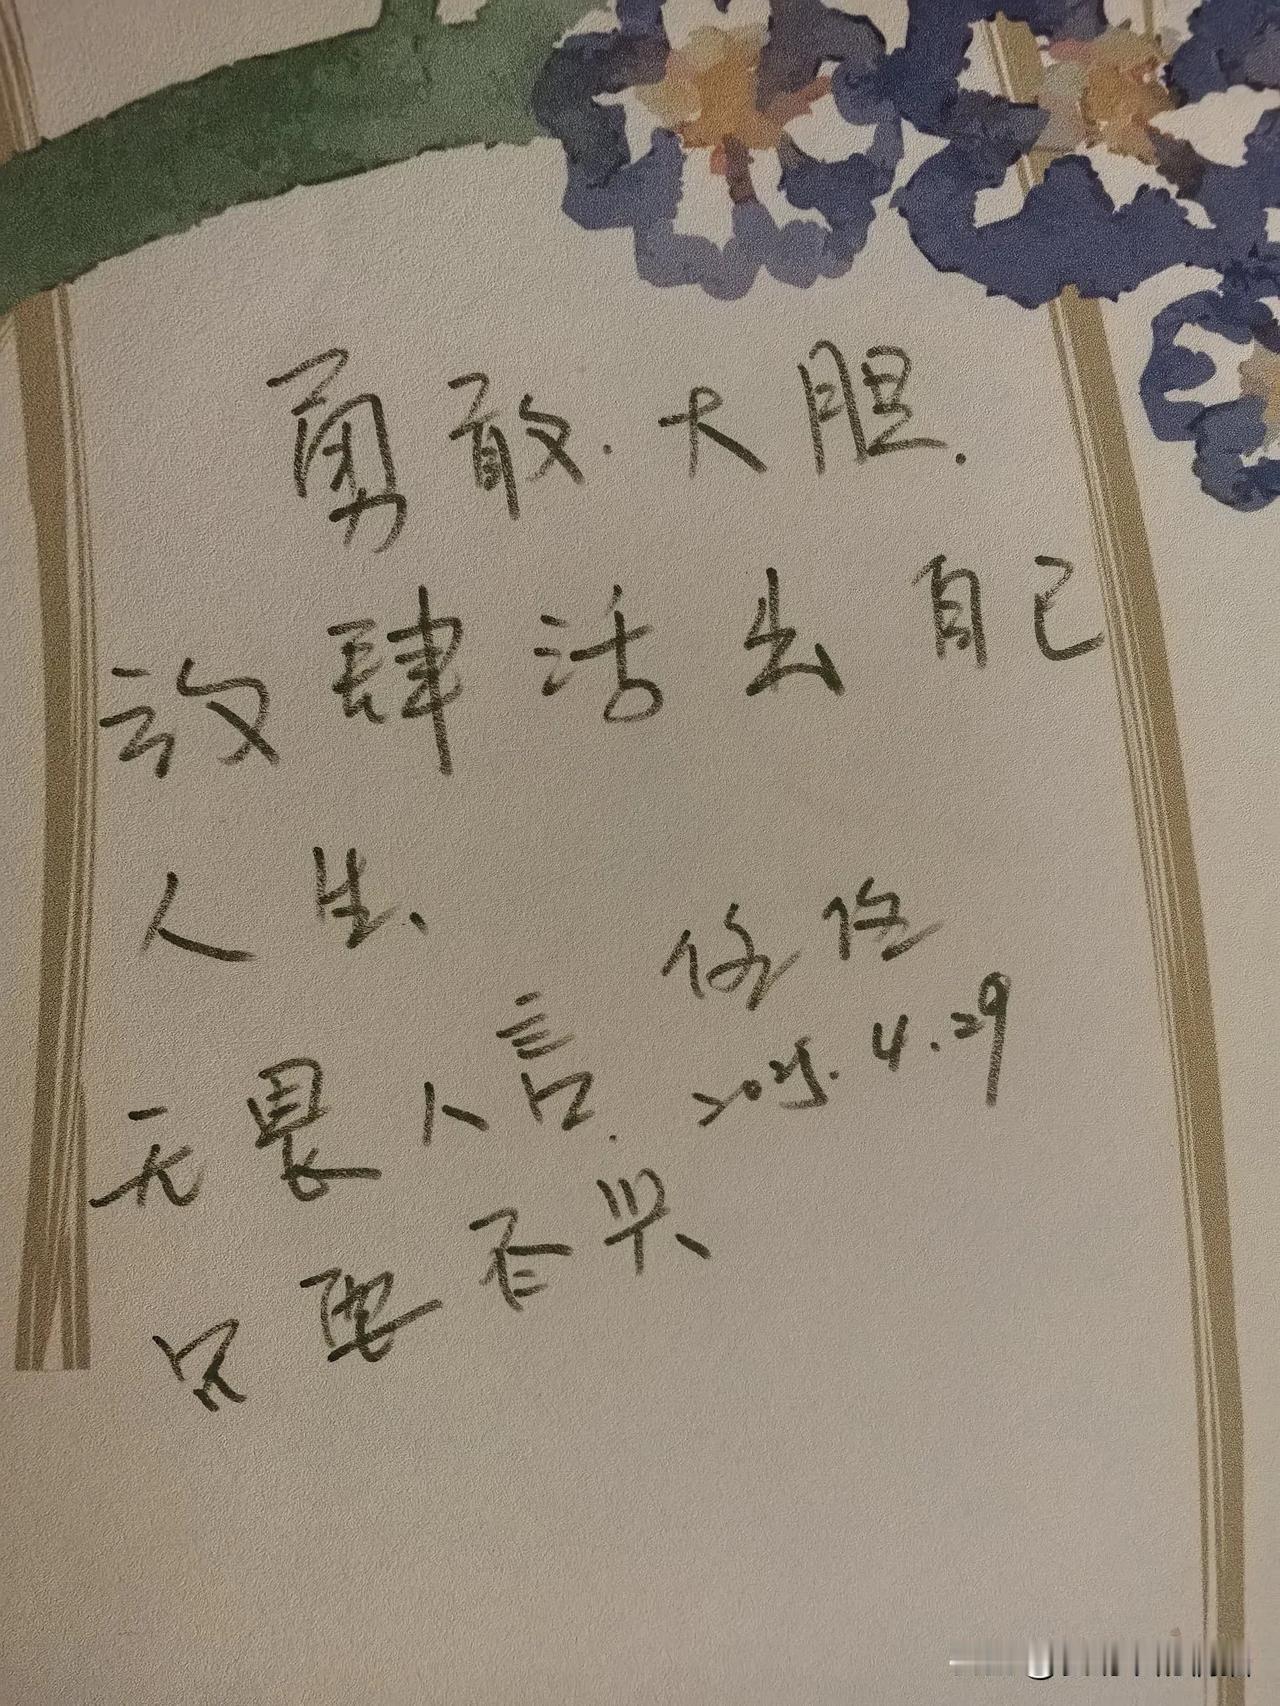 勇敢.大胆.
放肆活出自己
人生、
无畏人言.
只要高兴
2025.4.29